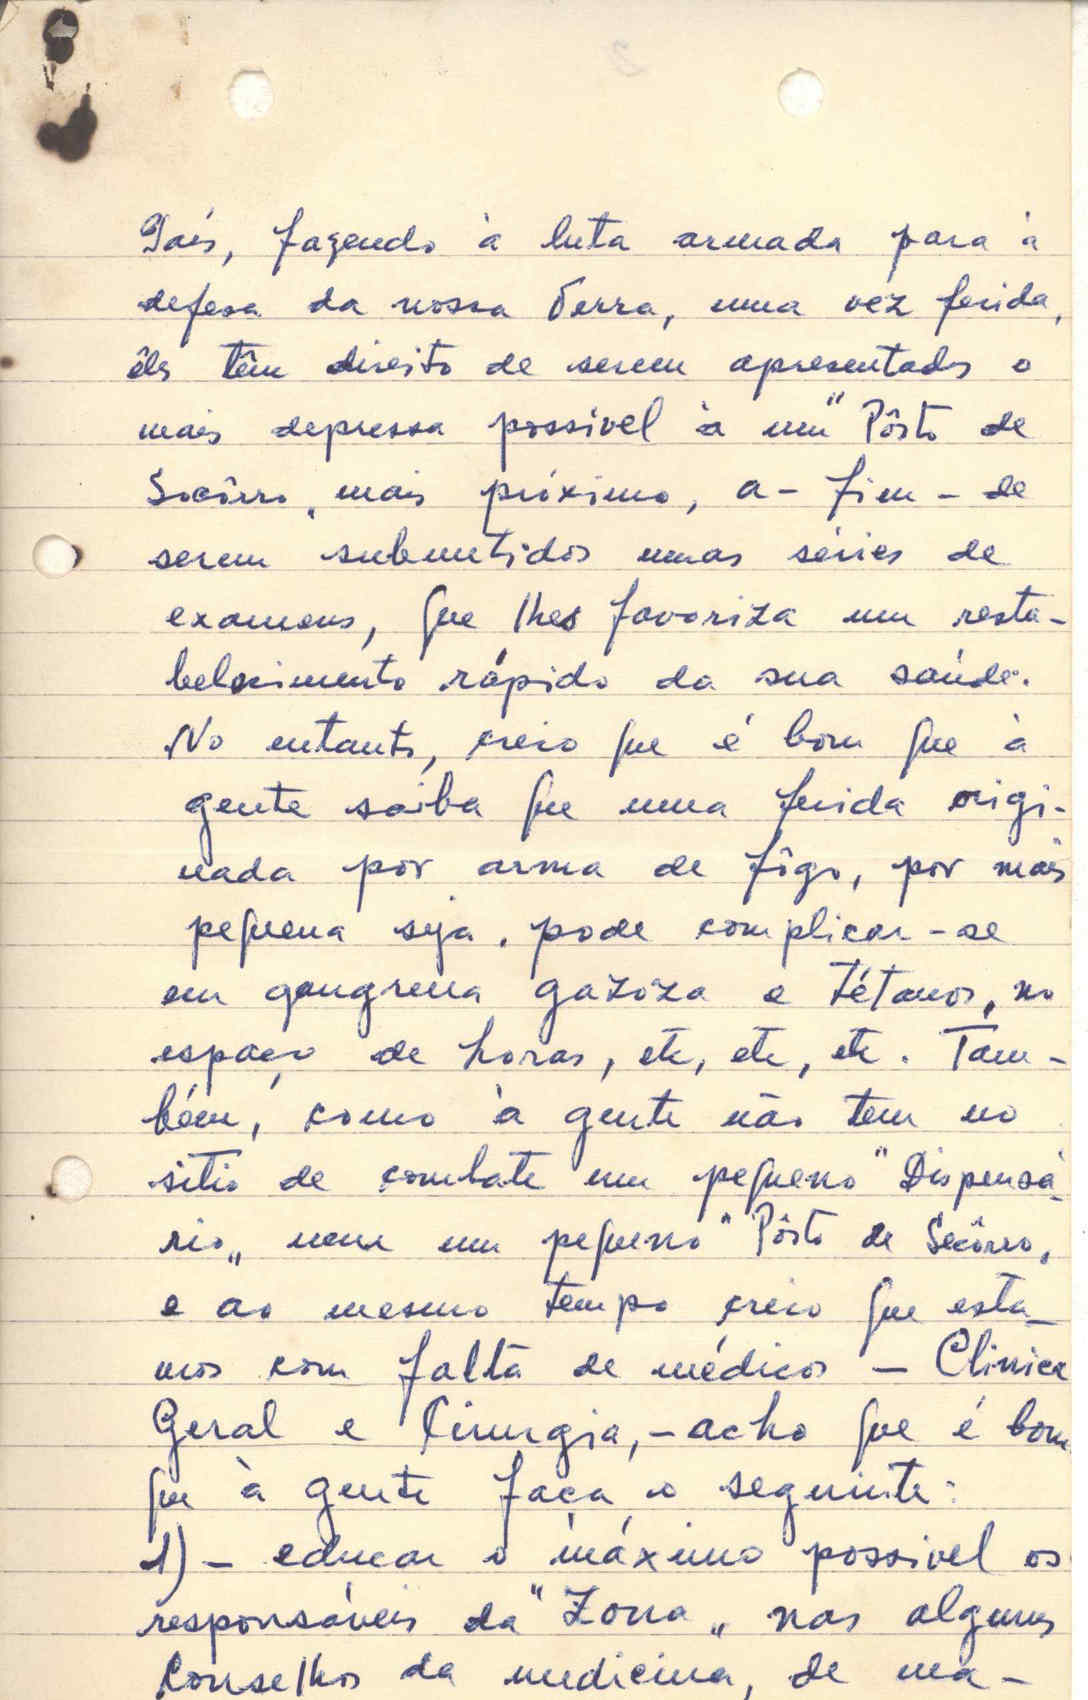 País, fazendo à luta armada para à
defesa da nossa Terra, uma vez ferida,
êles têm direito de serem apresentados o
mais depressa possível à um "Pôsto de
Socôrro„ mais próximo, a-fim-de
serem submetidos umas séries de
examens, que lhes favoriza um resta-
belecimento rápido da sua saúde.
No entanto, creio que é bom que à
gente saiba que uma ferida origi-
nada por arma de fôgo, por mais
pequena seja, pode complicar-se
em gangrena gazoza e Tétanos, no
espaço de horas, etc, etc, etc. Tam-
bém, como à gente não tem no
sitio de combate um pequeno "Dispensá-
rio„ nem um pequeno "Pôsto de Socôrro„
e ao mesmo tempo creio que esta-
mos com falta de médicos – Clinica
Geral e Cirurgia, – acho que é bom
que à gente faça o seguinte:
1) – educar o máximo possivel os
responsáveis da "Zona„ nas alguns
Conselhos da medicina, de ma-